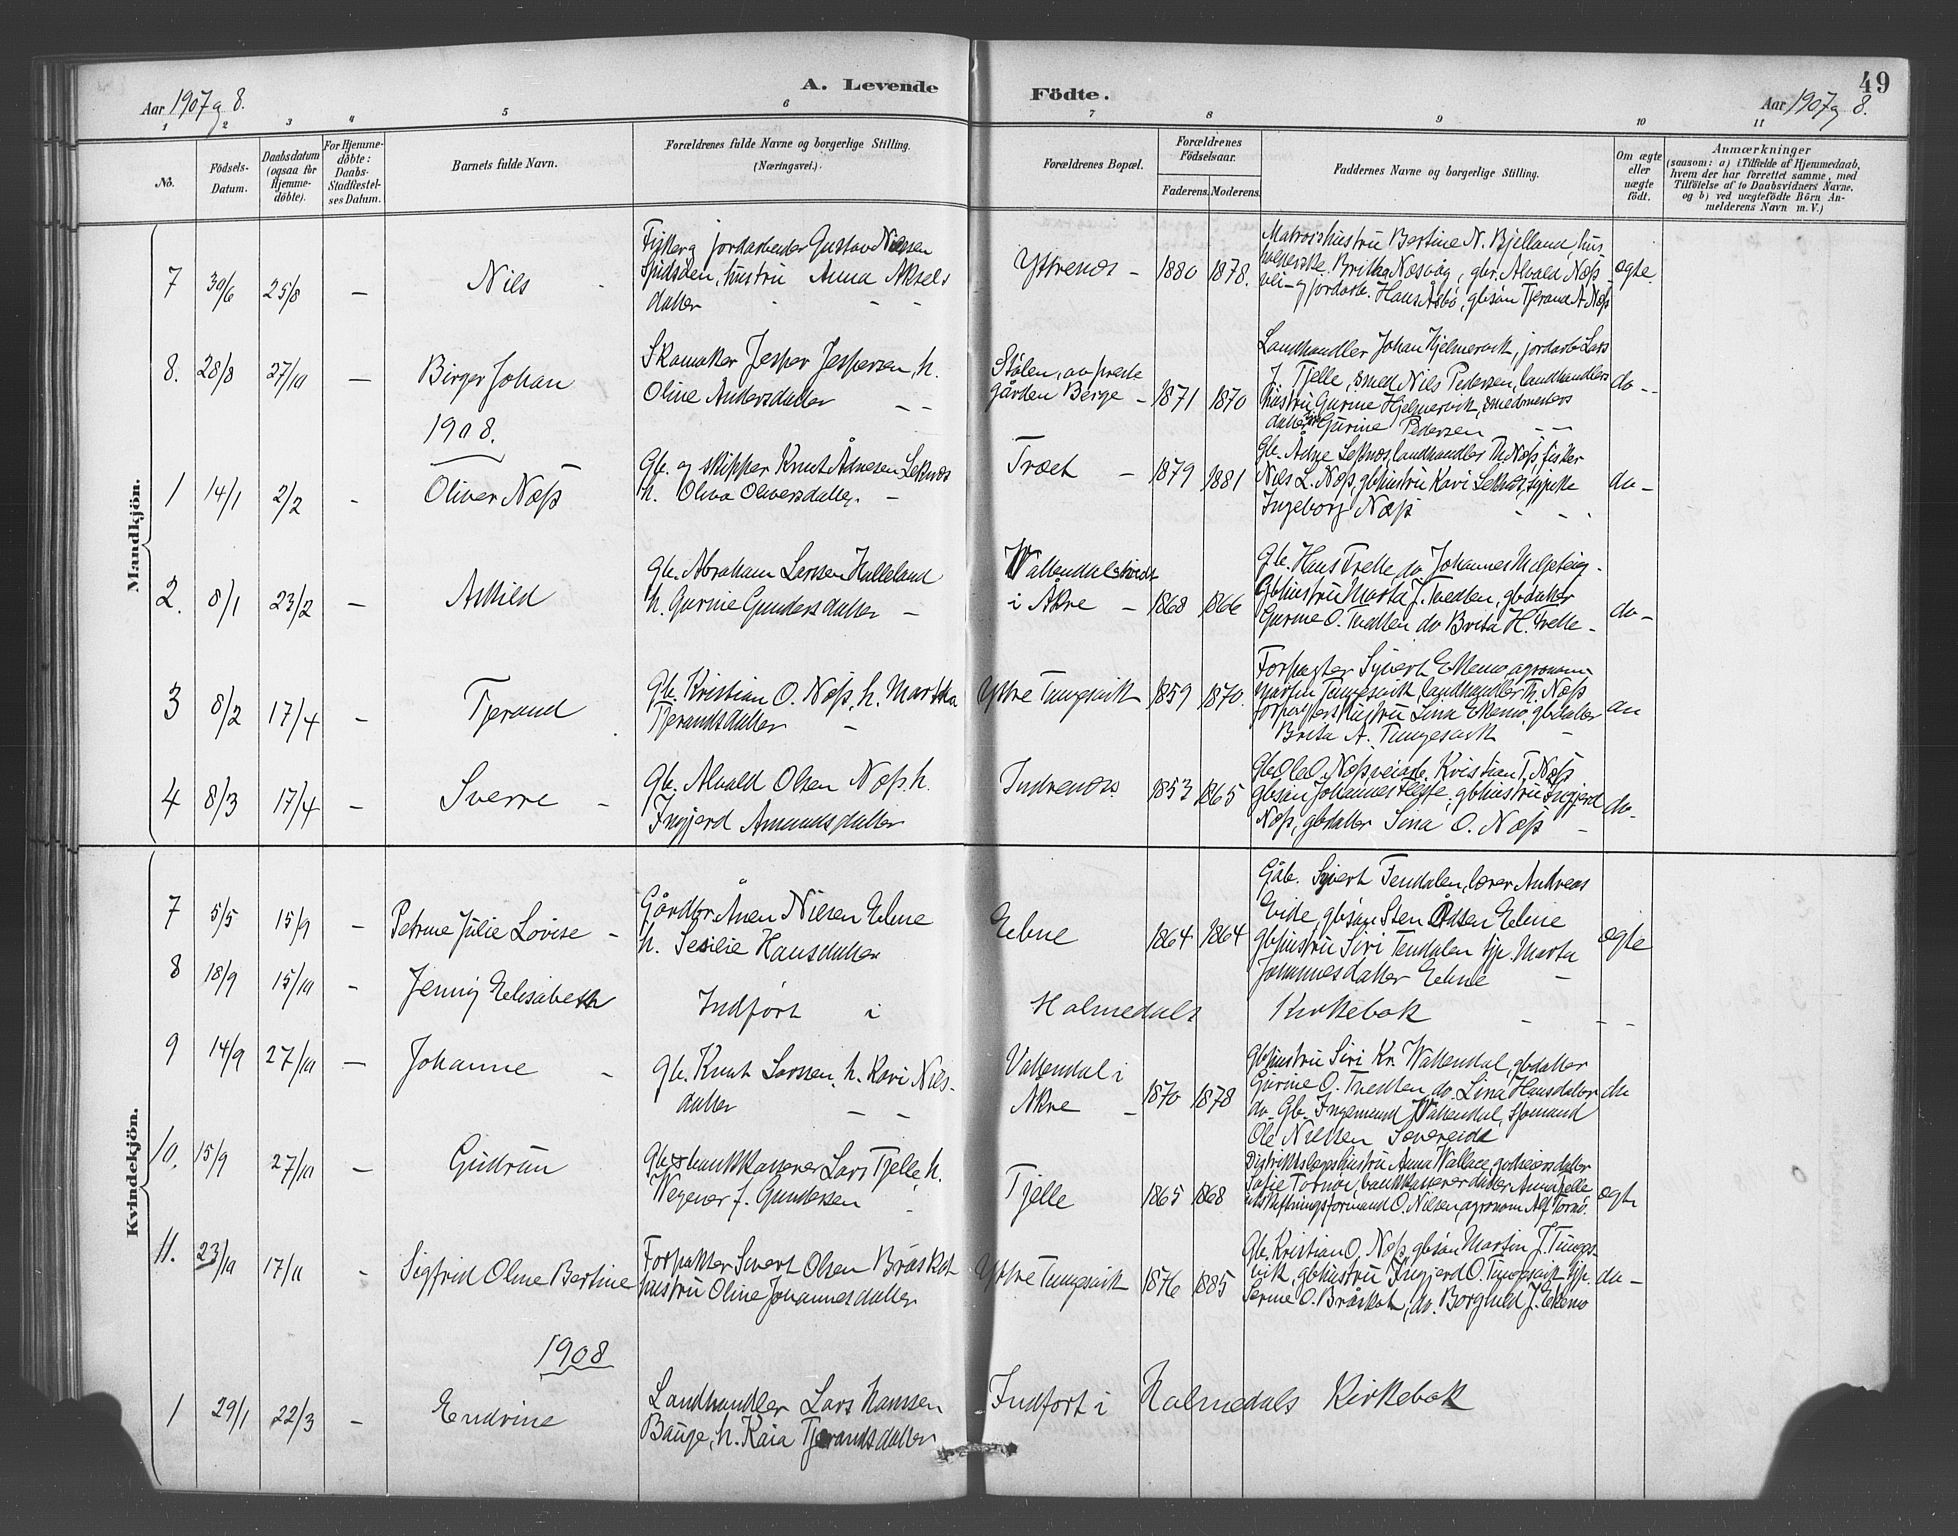 A. Levende Födte.
49
Aar 1907 og 8.
Aar 1907 og 8.
1 2 3 4 5 6 7 8 9 10 11
No.
Födsels-Datum.
Daabsdatum (ogsaa for Hjemme-döbte).
For Hjemme-döbte: Daabs-Stadfæstel-ses Datum.
Barnets fulde Navn.
Forældrenes fulde Navne og borgerlige Stilling. (Næringsvei.)
Forældrenes Bopæl.
Forældrenes Födselsaar.
Faderens. Moderens.
Faddernes Navne og borgerlige Stilling.
Om ægte eller uægte födt.
Anmærkninger
(saasom: a) i Tilfælde af Hjemmedaab, hvem der har forrettet samme, med Tilföielse af to Daabsvidners Navne, og b) ved uægtefödte Börn An-melderens Navn m. V.)
Mandkjön.
7 30/6 25/8 – Nils
Fisker og jordarbeider Gustav Nilssen
hustru Anna Aksels
datter
Ytrenes – 1880 1878.
Matroshustru Bertine N. Bjelland, hus
Alvald Næss
jordarb. Hans Åsbö, gbsön Tjerand A. Næss
ægte.
8. 28/8 27/10 – Birger Johan
Skomaker Jesper Jespersen, h.
Oline Andersdatter
Stölen, av preste
gården Berge – 1871 1870
Landhandler Johan Hjelmervik, jordarb Lars
J. Tjelle, smed Nils Pedersen, landhandlers
hustru Gurine Hjelmervik, smedmesters
datter Gurine Pedersen
do –
1908.
1 14/1 2/2 – Oliver Næss
Gb. og skipper Knut Ådnesen Leknes
h. Oliva Oliversdatter –
Træet – 1879 1881
Gb. Ådne Leknes, landhandler Th. Næss, fisker
Nils L. Næss, gbhustru Kari Leknes, pike
Ingeborg Næss
do –
2. 8/1 23/2 – Askild
Gb. Abraham Larssen Halleland
h. Gurine Gundersdatter –
Vattendal
i Åkre – 1868 1866
Gb. Hans Trelle do Johannes
Gbhustru Marta J. Tvedten, gbdatter
Gurine O. Tvedten do Brita H. Trelle –
do –
3 8/2 17/4 – Tjerand
Gb. Kristian O. Næss, h. Martha
Tjerandsdatter –
Ytre Tungesvik 1859 1870.
Forpagter Syvert Ekemo agronom
Martin Tungesvik, landhandler Th. Næss
forpagters hustru Lina Ekemo, gbdatter
Brita A. Tungesvik
do
4 8/3 17/4 – Sverre –
Gb. Alvald Olsen Næss. h.
Ingjerd Amundsdatter
Indrenes. 1853 1865
Gb Ole O. Næss, Kristian T. Næss
gbsön Johannes gbhustru Ingjerd
Næss, gbdatter Lina O. Næss –
do.
Kvindekjön.
7 5/5 15/9 – Petrine Julie Lovise –
Gårdbr Ånen Nilsen Eelme
h. Sesilie Hansdatter
Eelme 1864 1864
Gåb. Syvert Tendalen, lærer Andreas
Eide, gbsön Sten Eelme
gbhustru Siri Tendalen tjp. Marta
Johannesdatter Eelme –
ægte
8 18/9 15/10 – Jenny Elisabeth
Indfört i Holmedals Kirkebok – – –
9 14/9 27/10 – Johanne –
Gb. Knut Larssen, h. Kari Nils-
datter – –
Vattendal i
Åkre – 1870 1878
Gbhustru Siri Kn. Vattendal, gbdatter
Gurine O. Tvedten, do. Lina Hansdatter
do. Gb. Ingemund Vattendal, sjömand
Ole Nilsen
do
10. 15/9 27/10 – Gudrun
Gb & bankkasserer Lars Tjelle, h.
Wegener f. Gundersen
Tjelle 1865 1868
Distriktslægehustru Anna Wallace, godseiersdatter
Sofie Tornöe, bankkassererdatter Anna Tjelle
utskiftningsformand O. Nilsen, agronom Alf Tornö.
ægte
11. 23/10 17/11 – Sigfrid Oline Bertine
Forpakter Sivert Olsen Bråskat
hustru Oline Johannesdatter
Ytre Tungesvik 1876 1885
Gb. Kristian O. Næss, gbsön Martin J. Tunges-
vik, gbhustru Ingjerd O. Tungesvik tjp.
Serine O. Bråskat, do. Borghild J. Ekemo
do –
1908
1 29/1 22/3 – Endrine
Landhandler Lars Hansen
Bauge, h. Kaia Tjerandsdatter
Indfört i Holmedals Kirkebok